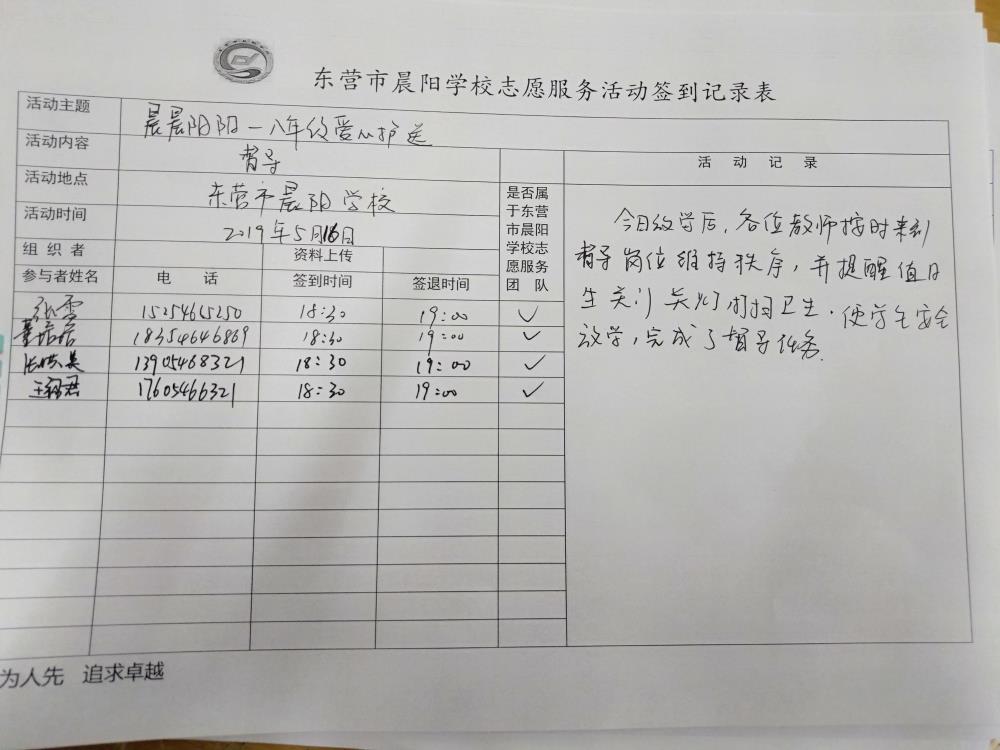 东营市晨阳学校志愿服务活动签到记录表
活动主题 晨晨阳阳一八年级爱心护送
活动内容 督导
活动地点 东营市晨阳学校
活动时间 2019年5月16日
组织者 资料上传
参与者姓名 电话 签到时间 签退时间 是否属于东营市晨阳学校志愿服务团队
张雪 15254665250 18:30 19:00 ✓
18354646869 18:30 19:00 ✓
13905468321 18:30 19:00 ✓
17605466321 18:30 19:00 ✓
活动记录
今日放学后,各位教师按时来到
督导岗位维持秩序,并提醒值日
生关门关灯打扫卫生.使学生安全
放学,完成了督导任务.
为人先 追求卓越